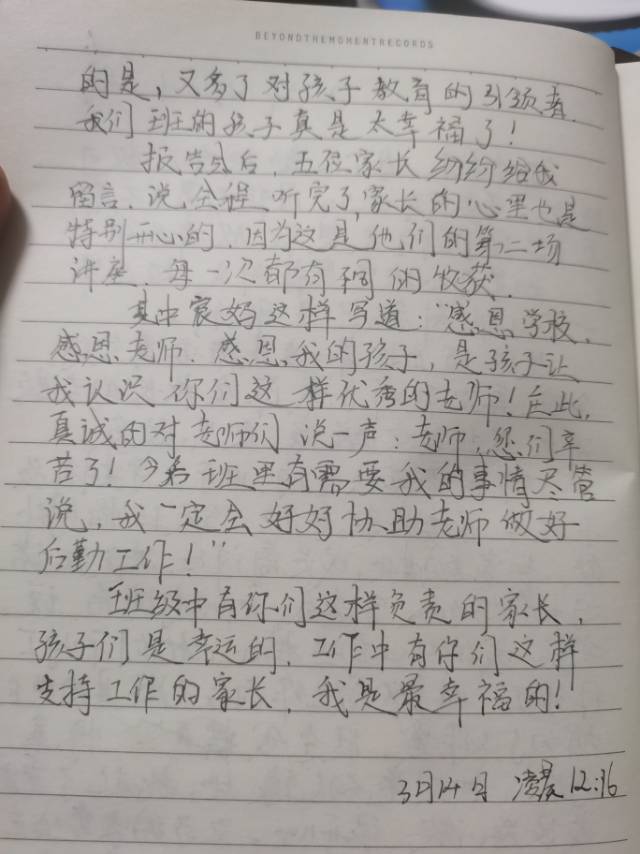 BEYONDTHEMOMENTRECORDS
的是，又多了对孩子教育的引领者
我们班的孩子真是太幸福了！
报告会后，五位家长纷纷给我
留言，说全程听完了，家长的心里也是
特别开心的，因为这是他们的第二场
讲座，每一次都有不同的收获。
其中宸妈这样写道：“感恩学校，
感恩老师，感恩我的孩子，是孩子让
我认识你们这样优秀的老师！在此，
真诚的对老师们说一声：老师，您们辛
苦了！今后班里有需要我的事情尽管
说，我一定会好好协助老师做好
后勤工作！”
班级中有你们这样负责的家长，
孩子们是幸运的，工作中有你们这样
支持工作的家长，我是最幸福的！
3月14日 凌晨12:16